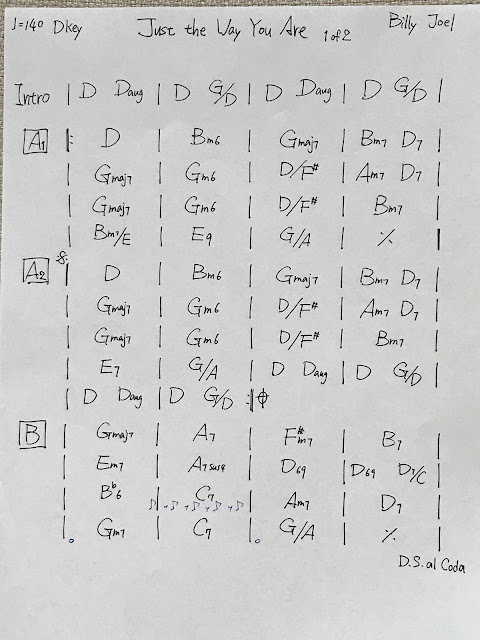 ♩=140 Dkey Just the Way You Are 1 of 2 Billy Joel
Intro | D Daug | D G/D | D Daug | D G/D |
A1 |: D | Bm6 | Gmaj7 | Bm7 D7 |
| Gmaj7 | Gm6 | D/F# | Am7 D7 |
| Gmaj7 | Gm6 | D/F# | Bm7 |
| Bm7/E | E9 | G/A | ٪ |
A2 𝄋 | D | Bm6 | Gmaj7 | Bm7 D7 |
| Gmaj7 | Gm6 | D/F# | Am7 D7 |
| Gmaj7 | Gm6 | D/F# | Bm7 |
| E7 | G/A | D Daug | D G/D |
| D Daug | D G/D :| 𝄌
B | Gmaj7 | A7 | F#m7 | B7 |
| Em7 | A7sus4 | D69 | D69 D7/C |
| B♭6 | C7 | Am7 | D7 |
| Gm7 | C7 | G/A | ٪ |
D.S. al Coda